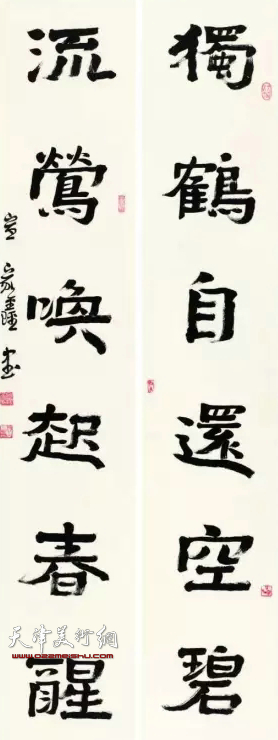 獨鶴自還空碧
流鶯喚起春醒
宣家鑫書
天津美術網
www.022meishu.com